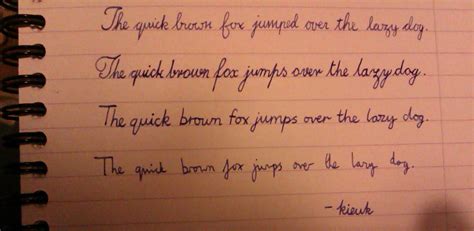 The quick brown fox jumped over the lazy dog.
The quick brown fox jumps over the lazy dog.
The quick brown fox jumps over the lazy dog.
The quick brown fox jumps over the lazy dog.
- kieuk